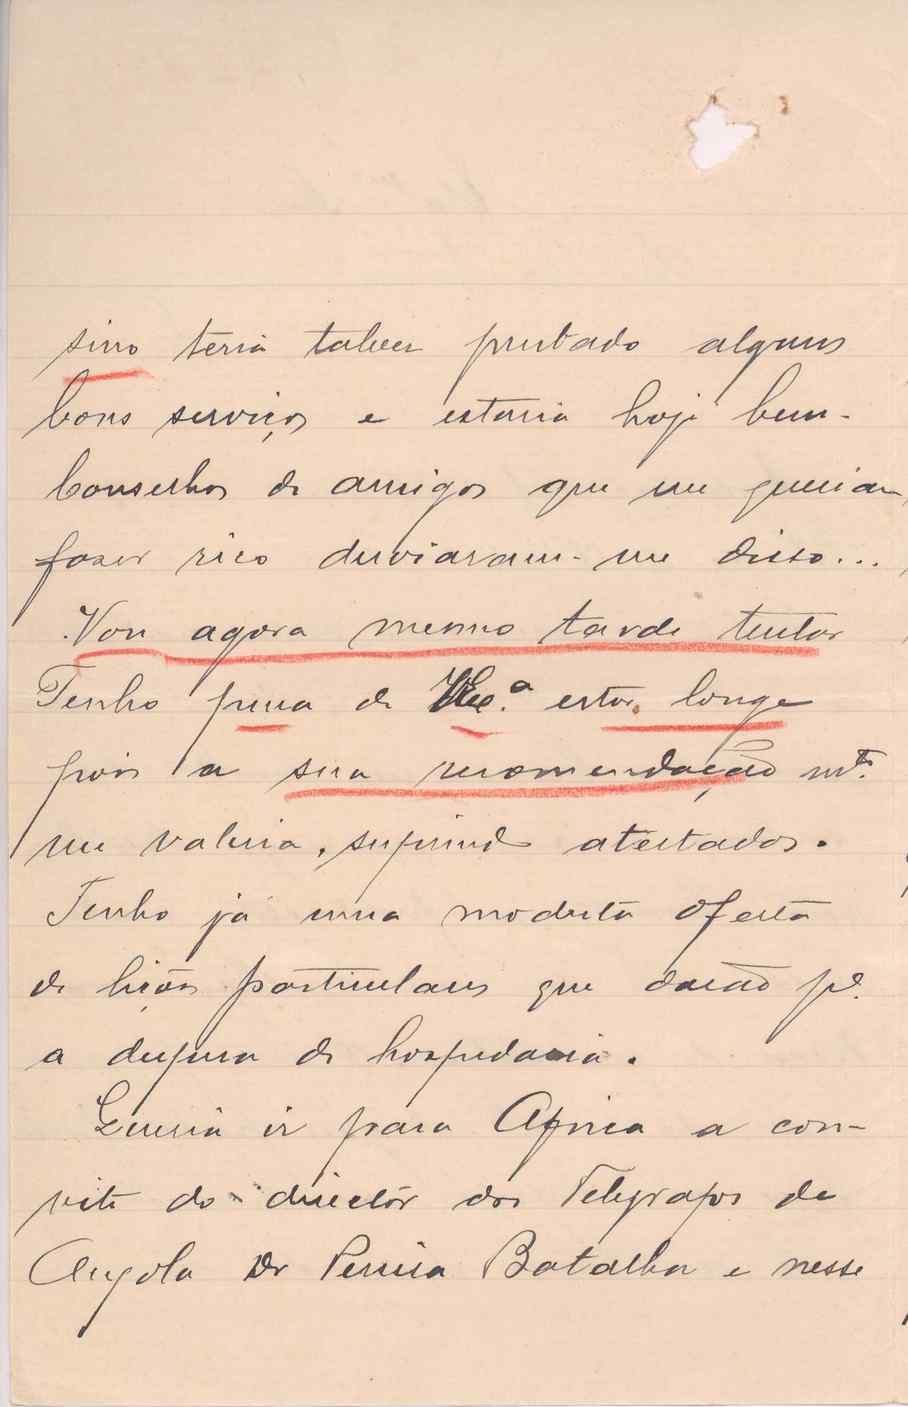 sino teria talvez prestado alguns
bons serviços e estaria hoje bem-
Conselhos de amigos que me queriam
fazer rico desviaram-me disso...
Vou agora mesmo tarde tentar
Tenho pena de V. Exc.ª estar longe
pois a sua recomendação mt.º
me valeria, suprindo atestados.
Tenho já uma modesta oferta
de lições particulares que darão p.ª
a despesa de hospedaria.
Queria ir para Africa a con-
vite do director dos Telegrafos de
Angola Dr Pereira Batalha e nesse